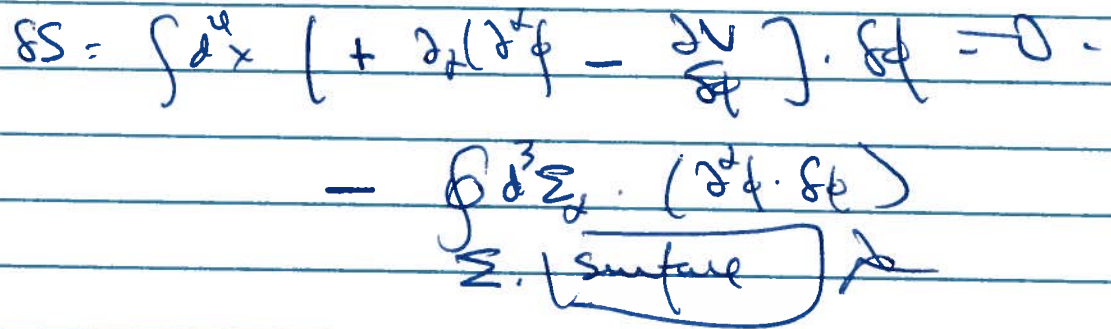 δS = ∫ d⁴x [ + ∂_α(∂^αφ − ∂V/δφ ] · δφ = 0 ·
− ∮ d³Σ_α · (∂^αφ · δφ)
Σ. surface